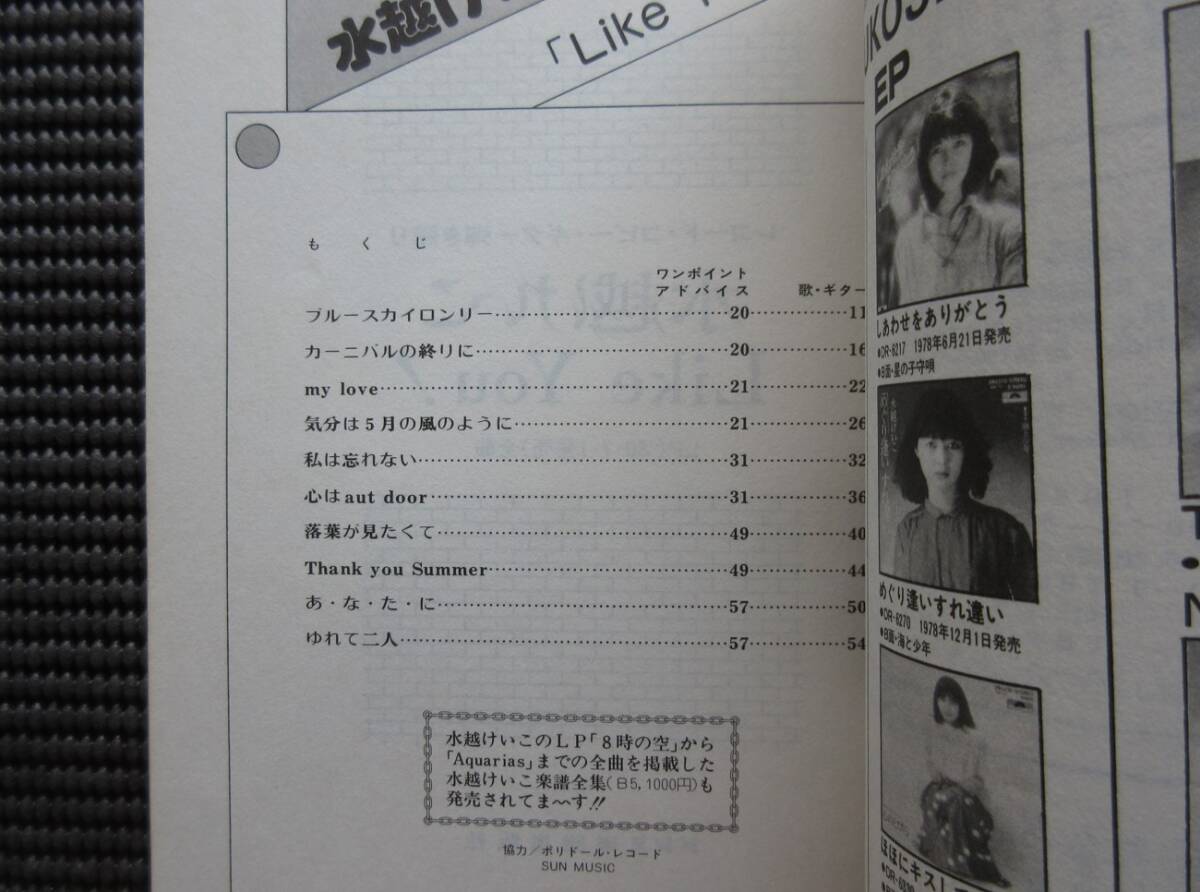 水越け
「Like
もくじ
ワンポイント
アドバイス 歌・ギター
ブルースカイロンリー……20……11
カーニバルの終りに……20……16
my love……21……22
気分は5月の風のように……21……26
私は忘れない……31……32
心はaut door……31……36
落葉が見たくて……49……40
Thank you Summer……49……44
あ・な・た・に……57……50
ゆれて二人……57……54
水越けいこのLP「8時の空」から
「Aquarias」までの全曲を掲載した
水越けいこ楽譜全集(B5,1000円)も
発売されてま〜す!!
協力/ポリドール・レコード
SUN MUSIC
EP
しあわせをありがとう
●DR-6217 1978年6月21日発売
●B面・星の子守唄
めぐり逢いすれ違い
●DR-6270 1978年12月1日発売
●B面・海と少年
ほほにキスし